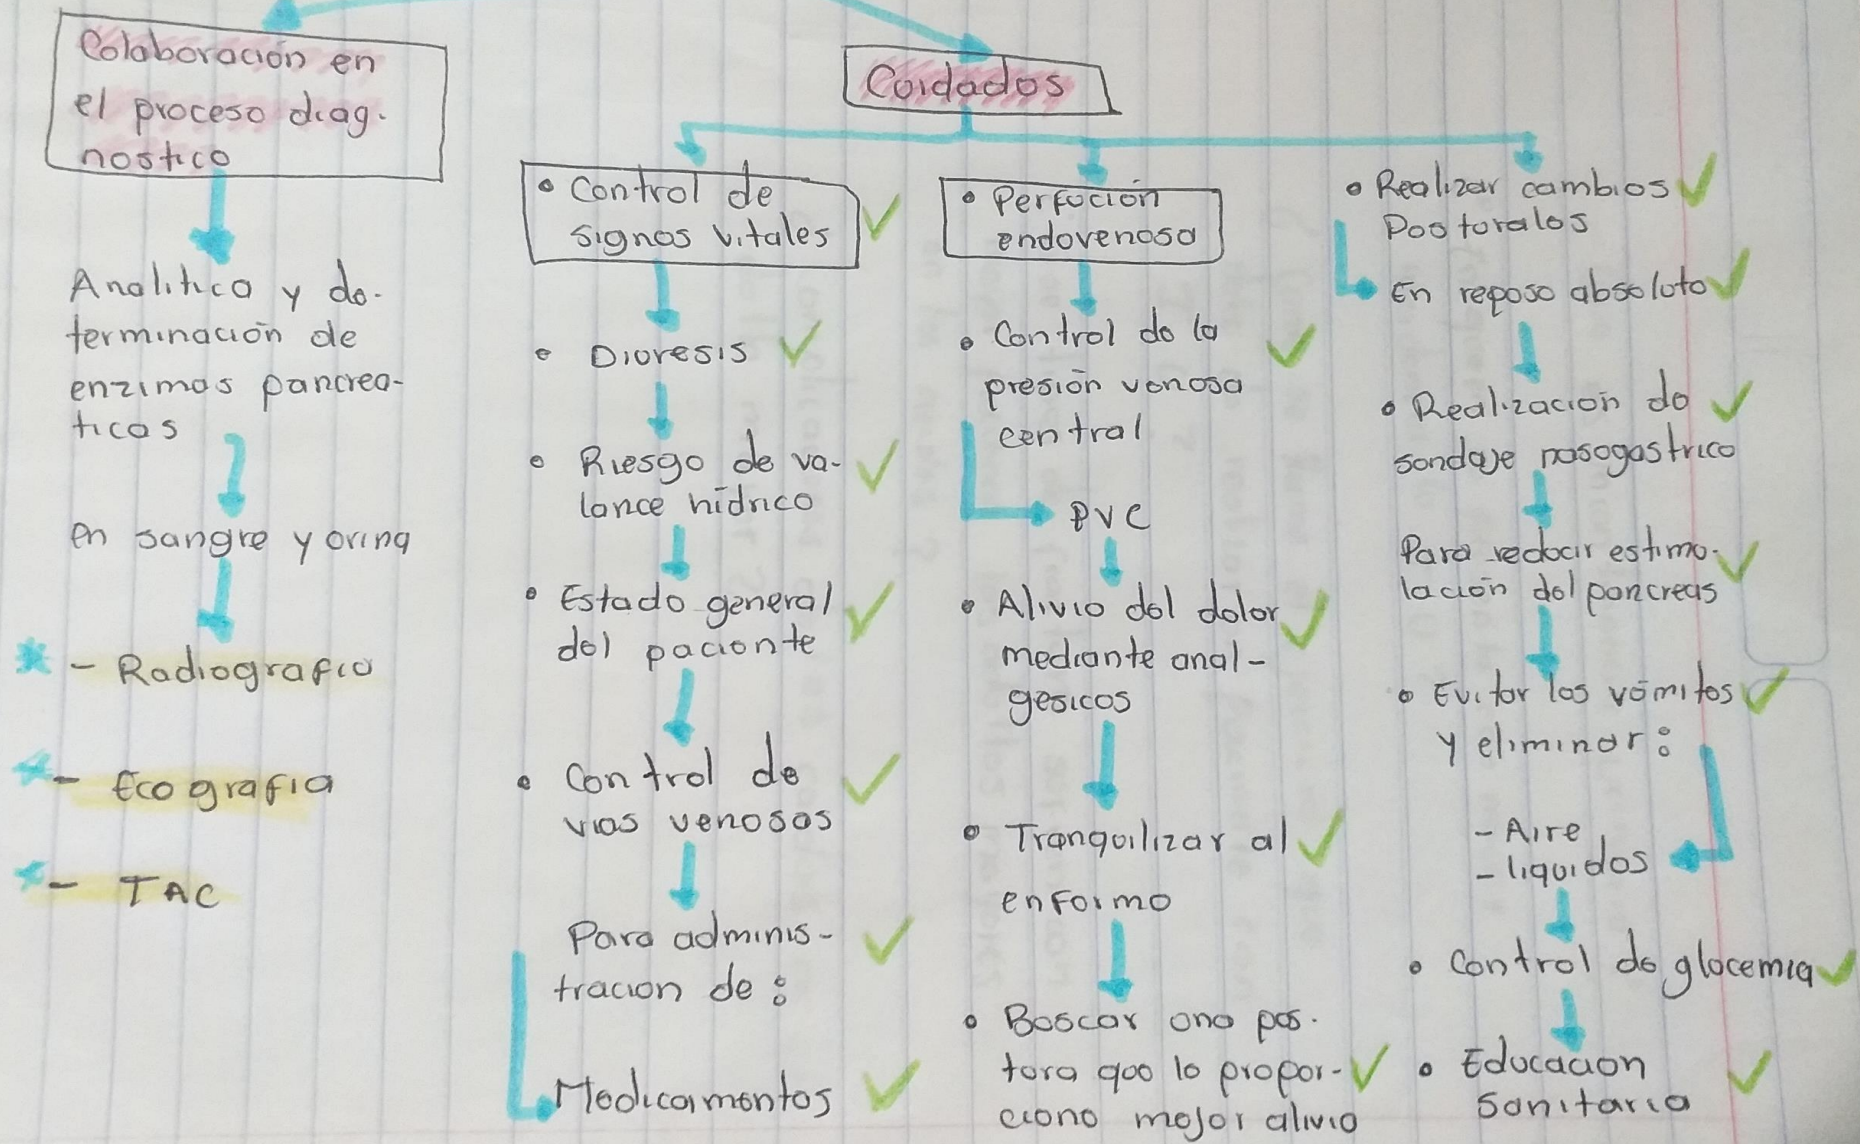 Colaboración en
el proceso diag-
nostico
Analitica y de-
terminación de
enzimas pancrea-
ticas
en sangre y orina
- Radiografia
- Ecografia
- TAC
Cuidados
• Control de
signos vitales
• Diuresis
• Riesgo de va-
lance hídrico
• Estado general
del paciente
• Control de
vias venosas
Para adminis-
tracion de:
Medicamentos
• Perfución
endovenosa
• Control de la
presión venosa
central
PVC
• Alivio del dolor
mediante anal-
gesicos
• Tranquilizar al
enfermo
• Buscar una pos-
tura que lo propor-
cione mejor alivio
• Realizar cambios
Posturales
En reposo absoluto
• Realización de
sondaje nasogastrico
Para reducir estimu-
lación del pancreas
• Evitar los vómitos
y eliminar:
- Aire
- liquidos
• Control de glucemia
• Educacion
Sanitaria